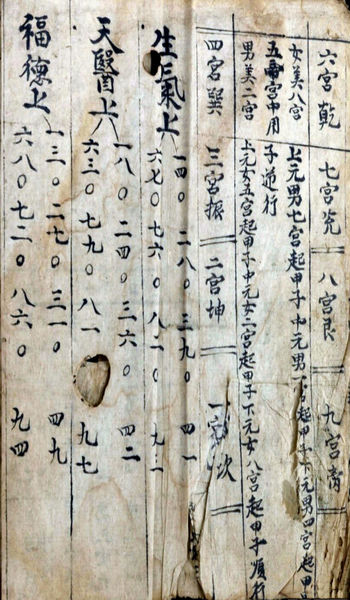 六宮乾 七宮兊 八宮艮 九宮
女美八宮 上元男七宮起甲子中元男一宮起甲子下元男四宮起甲
五 宮中用 子逆行
男美二宮 上元女五宮起甲子中元女二宮起甲子下元女八宮起甲子順行
四宮巽 三宮振 二宮坤 一宮次
生氣上 一四〇 二八〇 三九〇 四一
六七〇 七六〇 八二〇 九三
天醫上 一八〇 二四〇 三六〇 四二
六三〇 七九〇 八一 九七
福德上 一三〇 二七〇 三一〇 四九
六八〇 七二〇 八六〇 九四